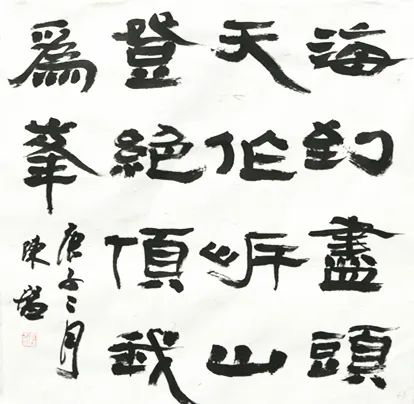 海到盡頭
天作岸山
登絕頂我
爲峯
庚子二月
陳